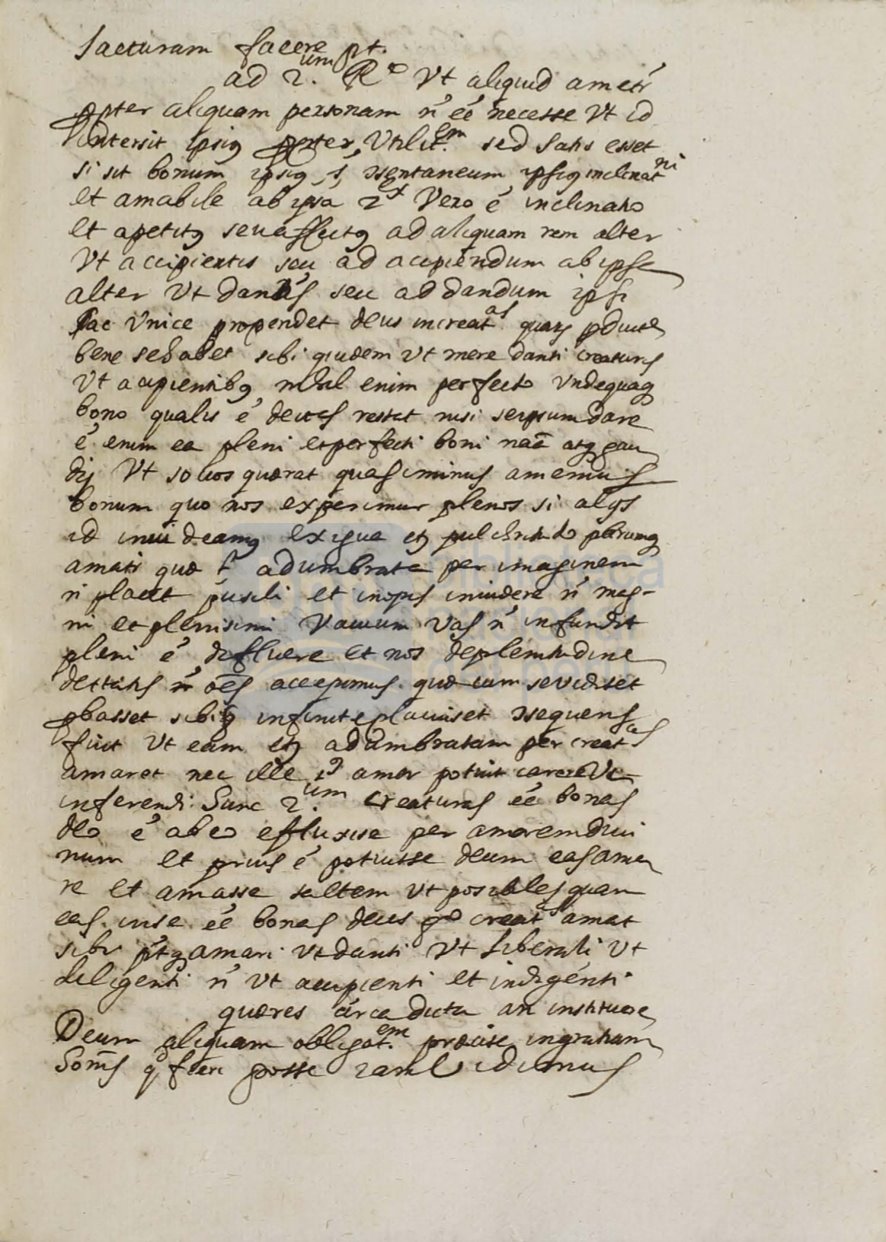 Jacturam facere pt.
ad 2.um R.o Vt aliquid ametr
ppter aliquam personam n̄ ēē necesse Vt id
intersit ipsiꝰ ppter Vtilit.em sed satis esset
si sit bonum ipsiꝰ ipsiꝰ inclinat.ni
et amabile ab ipsa 2.x Vero ē inclinatio
et apetitꝰ seu affectꝰ ad aliquam rem alter
Vt accipientis seu ad accipiendum ab ipse
alter Vt dantis seu ad dandum ipsi
hac Vnice propendet deus in creat.as
bene se habet sibi quidem Vt mere danti creaturis
Vt accipientibꝰ nihil enim perfecto Vndequaq
bono qualis ē deitas restat nisi seipsum dare
ē enim ea pleni et perfecti boni naā atq gau
dij Vt socios quærat quasi minus amemus
bonum quo nos experimur plenos si alijs
id invideamꝰ exigua etꝫ pulchritudo plerumq
amati quæ adumbrate per imaginem
n̄ placet pusili et inopis invidere n̄ mag-
ni et plenisimi Vacuum Vas n̄ infundit
pleni ē difluere et nos de plenitudine
deitatis n̄ oēs accepimus quæ cum se vidiset
sibiq infinite placuiset ꝯsequens
fuit Vt eam etꝫ adumbratam per creat.as
amaret nec ille amor potuit carere Vi
inferendi: hunc 2.um creaturas ēē bonas
deo ē ab eo efluxise per amorem divi
num et prius ē potuisse deum eas ama
re et amasse saltem Vt posibles quam
eas in se ēē bonas deus creat.as amat
sibi amari Vt danti Vt liberali Vt
diligenti n̄ Vt accipienti et indigenti
quæres circa dicta an instituere
Deum aliquam obligat.em præcise in gratiam
Hom̄s q fieri posse iam Vidimus